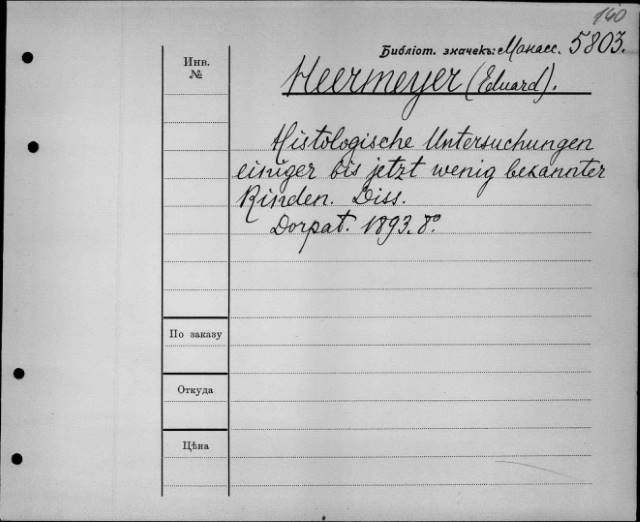 140
Библіот. значекъ: Манасс. 5803.
Инв.
№
Heermeyer (Eduard).
Histologische Untersuchungen
einiger bis jetzt wenig bekannter
Rinden. Diss.
Dorpat. 1893. 8º
По заказу
Откуда
Цѣна